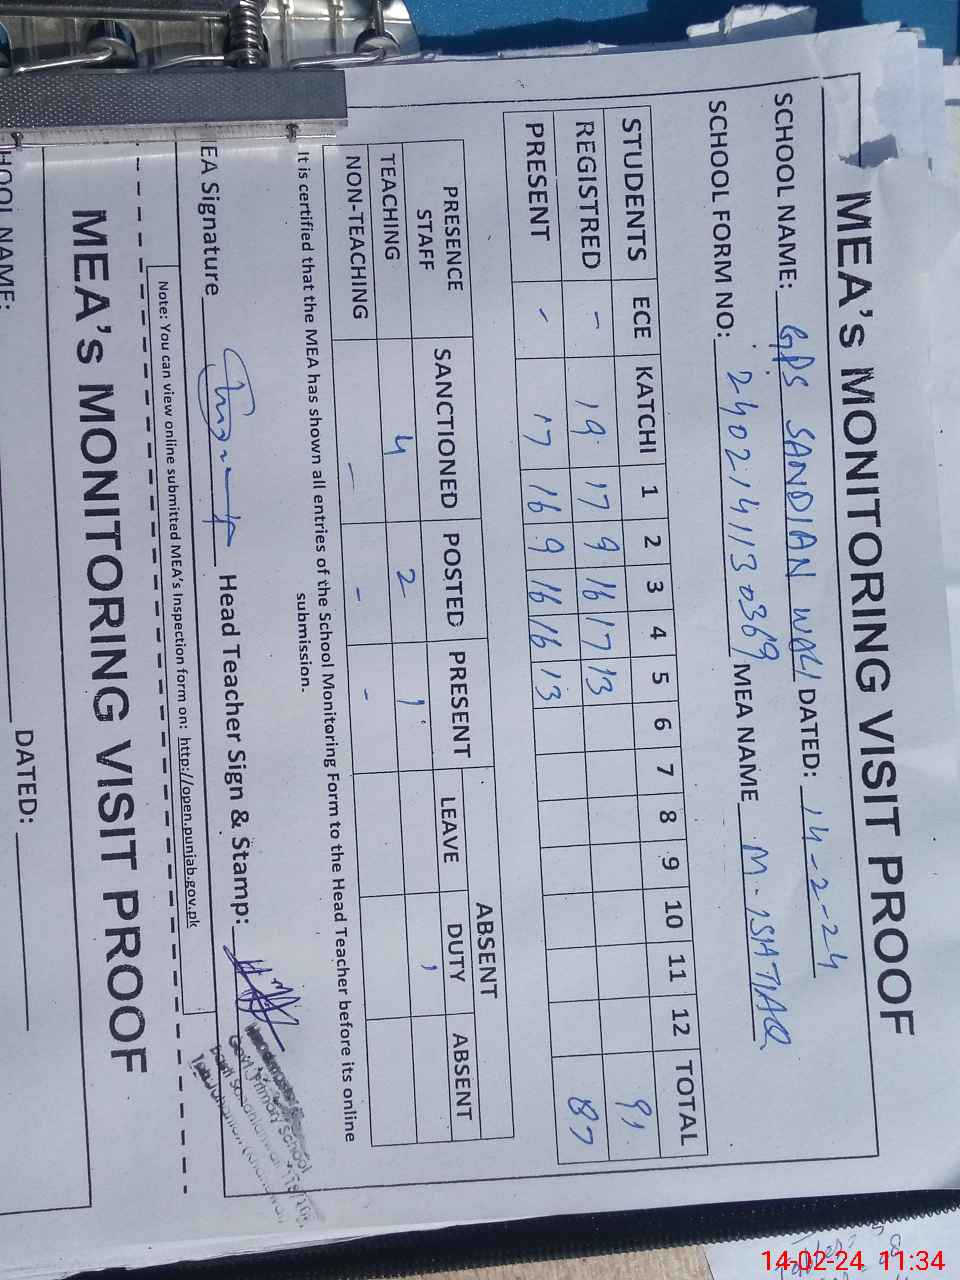 MEA's MONITORING VISIT PROOF
SCHOOL NAME: GPS SANDIAN WALI DATED: 14-2-24
SCHOOL FORM NO: 2402141130369 MEA NAME M. ISHTIAQ
STUDENTS ECE KATCHI 1 2 3 4 5 6 7 8 9 10 11 12 TOTAL
REGISTRED - 19 17 9 16 17 13 91
PRESENT - 17 16 9 16 16 13 87
PRESENCE STAFF SANCTIONED POSTED PRESENT ABSENT
LEAVE DUTY ABSENT
TEACHING 4 2 1 1
NON-TEACHING - - -
It is certified that the MEA has shown all entries of the School Monitoring Form to the Head Teacher before its online
submission.
EA Signature Head Teacher Sign & Stamp:
Govt. Primary School
Note: You can view online submitted MEA's Inspection form on: http://open.punjab.gov.pk
MEA's MONITORING VISIT PROOF
HOOL NAME: DATED:
14-02-24 11:34